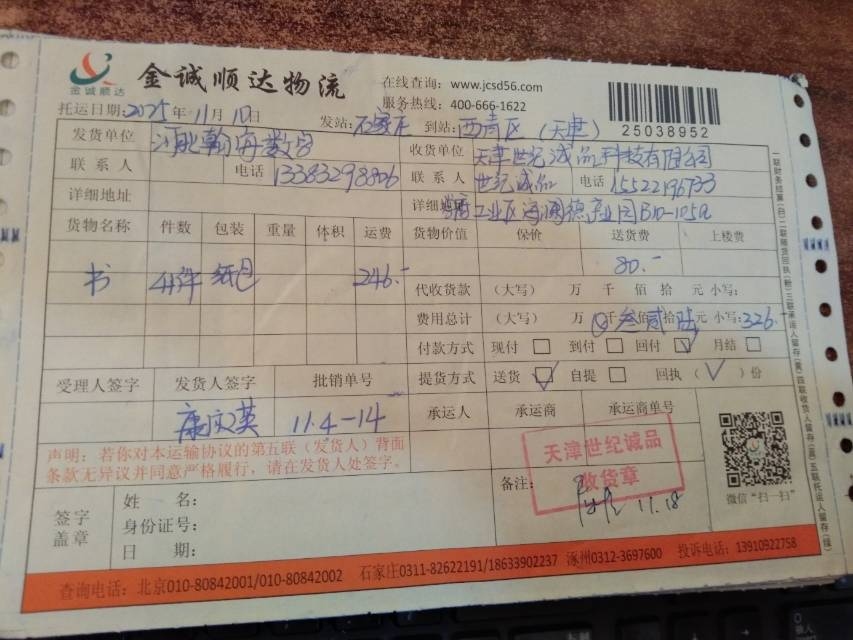 金诚顺达
金诚顺达物流
在线查询：www.jcsd56.com
服务热线：400-666-1622
25038952
托运日期：2025年11月10日 发站：石家庄 到站：西青区（天津）
发货单位 河北翰海数字 收货单位 天津世纪诚品科技有限公司
联系人 电话 13383298806 联系人 世纪诚品 电话 15522196733
详细地址 详细地址 工业区 产业园B10-105a
货物名称 件数 包装 重量 体积 运费 货物价值 保价 送货费 上楼费
80.-
书 4件 纸包 246.- 代收货款 （大写） 万 千 佰 拾 元 小写：
费用总计 （大写） 万 千叁佰贰拾陆元 小写：326.
付款方式 现付 □ 到付 □ 回付 ☑ 月结 □
受理人签字 发货人签字 批销单号 提货方式 送货 ☑ 自提 □ 回执（√）份
康文英 11.4-14 承运人 承运商 承运商单号
声明：若你对本运输协议的第五联（发货人）背面
条款无异议并同意严格履行，请在发货人处签字。
天津世纪诚品
收货章
备注：
11.18
微信“扫一扫”
签字
盖章
姓 名：
身份证号：
日 期：
查询电话：北京010-80842001/010-80842002 石家庄0311-82622191/18633902237 涿州0312-3697600 投诉电话：13910922758
一联财务结算（白）二联随货回执（粉）三联承运人留存（黄）四联收货人留存（蓝）五联托运人留存（绿）